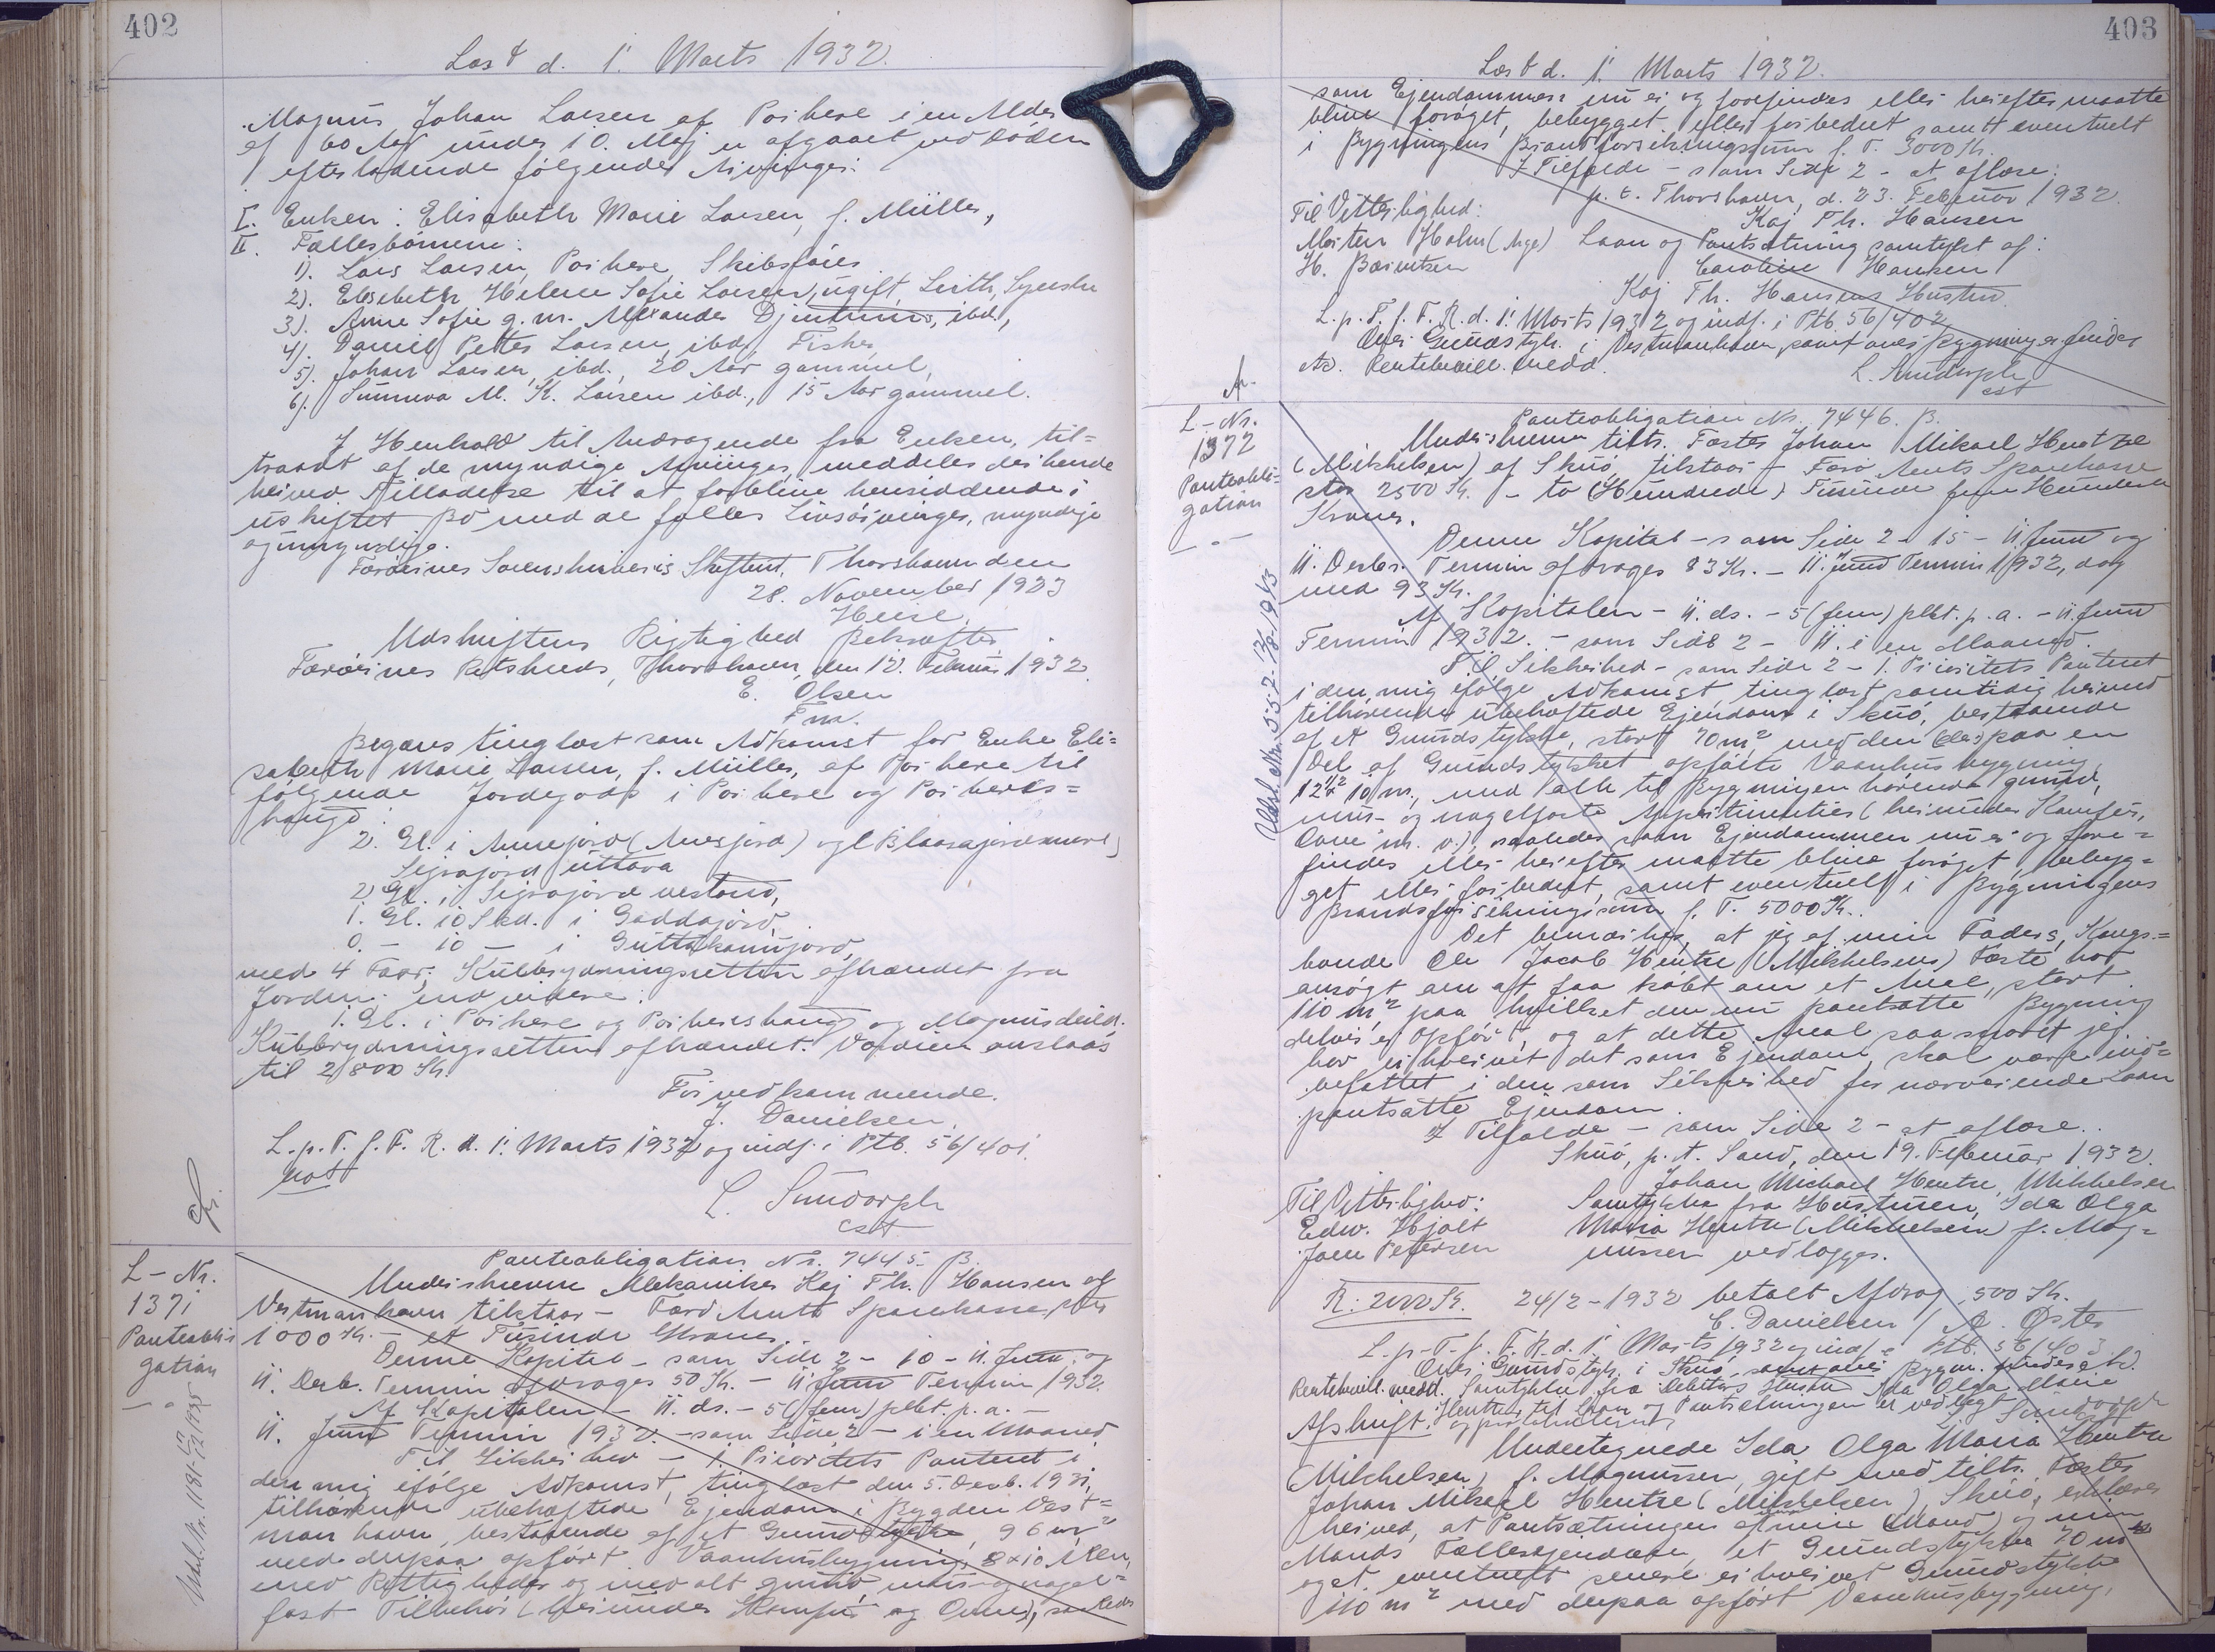 402
Læst d. 1. Marts 1932.
Magnus Johan Larsen af Porkere i en Alder
af 60 Aar under 10. Maj er afgaaet ved Døden
efterladende følgende Arvinger:
I. Enken: Elisabeth Marie Larsen, f. Müller,
II. Fællesbørnene:
1). Lars Larsen, Porkere, Skibsfører
2). Elisabeth Helene Sofie Larsen, ugift, Leith,
3). Anne Sofie g. m. Alexander ibd.,
4). Daniel Petter Larsen, ibd., Fisker
5). Johan Larsen, ibd., 20 Aar gammel,
6). Sunneva M. K. Larsen ibd., 15 Aar gammel.
I Henhold til Andragende fra Enken, til=
traadt af de myndige Arvinger, meddeles der hende
herved Tilladelse til at forblive hensiddende i
uskiftet Bo med de fælles Livsarvinger, myndige
og umyndige.
Færøernes Sorenskriveris Skifteret, Thorshavn den
28. November 1923
Heise
Udskriftens Rigtighed Bekræftes
Færøernes Retskreds, Thorshavn, den 12. Februar 1932.
E. Olsen
Fm.
Begæres tinglæst som Adkomst for Enke Eli=
sabeth Marie Larsen, f. Müller, af Porkere til
følgende Jordegods i Porkere og Porkeres=
haugs
2. Gl. i Annejord (Anesjord) og
Sigrajord uttara
2 Gl. i Sigrajord vestara,
1. Gl. 10 Skd. i Gaddajord,
0. — 10 — i
med 4 Faar; Kubbrydningsretten afhændet fra
Jorden; endvidere:
1. Gl. i Porkere og Porkereshaugs og Magnusdeild.
Kubbrydningsretten afhændet. Værdien anslaas
til 2800 Kr.
For vedkommende.
J. Danielsen.
L. p. T. f. F. R. d. 1. Marts 1932 og indf. i Ptb. 56/401.
L. Sundorph
cst
L-Nr.
1371
Panteobli-
gation
Pantobligation Nr. 7445. B.
Underskrevne Mekaniker Kaj Th. Hansen af
Vestmanhavn tilstaar — Færø Amts Sparekasse, stor
1000 Kr. — et Tusinde Kroner.
Denne Kapital — som Side 2 — 10 — 11. Juni og
11. Decb. Termin afdrages 50 Kr. — 11 Juni Termin 1932.
Af Kapitalen — 11. ds. — 5 (fem) pCt. p. a. —
11. Juni Termin 1932. — som Side 2 — i en Maaned
Til Sikkerhed — 1. Prioritets Panteret i
den mig ifølge Adkomst, tinglæst den 5. Decb. 1931,
tilhørende ubehæftede Ejendom i Bygden Vest=
manhavn, bestaaende af et Grundstykke, 96 m²
med derpaa opført Vaanhusbygning, 8 x 10 Alen,
med Rettigheder og med alt grund mur- og nagel=
fast Tilbehør (herunder Komfur og Ovne), saaledes
403
Læst d. 1. Marts 1932.
som Ejendommen nu er og forefindes eller herefter maatte
blive forøget, bebygget eller forbedret samt eventuelt
i Bygningens Brandforsikringssum f. T. 3000 Kr.
I Tilfælde — som Side 2 — at aflæse:
p. t. Thorshavn, d. 23. Februar 1932.
Til Vitterlighed: Kaj Th. Hansen
Morten Holm Laan og Pantsætning samtykt af:
H. Berentsen Caroline Hansen
Kaj Th. Hansens Hustru.
L. p. T. f. F. R. d. 1. Marts 1932 og indf. i Ptb. 56/402
Over Grundstyk. i Vestmanhavn, samt over Bygning er findes
Att. Rentebevill. medd. L. Sundorph
cst
L-Nr.
1372
Panteobli-
gation
Panteobligation Nr. 7446. B.
Underskrevne tiltr. Fæster Johan Mikael Hentze
(Mikkelsen) af Skuø, tilstaar — Færø Amts Sparekasse
stor 2500 Kr. — to (Hundrede) Tusinde fem Hundrede
Kroner.
Denne Kapital — som Side 2 — 15 — 11. Juni og
11. Decbr. Termin afdrages 83 Kr. — 11. Juni Termin 1932, dog
med 93 Kr.
Af Kapitalen — 11. ds. — 5 (fem) pCt. p. a. — 11 Juni
Termin 1932. — som Side 2 — 11. i en Maaned.
Til Sikkerhed — som Side 2 — 1. Prioritets Panteret
i den mig ifølge Adkomst, tinglæst samtidig hermed
tilhørende ubehæftede Ejendom i Skuø, bestaaende
af et Grundstykke, stort 70 m² med den paa en
Del af Grundstykket opførte Vaanhusbygning
12½ x 10 m., med alt til Bygningen hørende grund,
mur- og nagelfaste Appertinentier (herunder Komfur,
Ovne m. v.), saaledes som Ejendommen nu er og fore=
findes eller herefter maatte blive forøget, bebyg=
get eller forbedret, samt eventuelt i Bygningens
Brandforsikringssum f. T. 5000 Kr.
Det bemærkes, at jeg af min Faders, Kongs=
bonde Ole Jacob Hentze (Mikkelsens) Fæste har
ansøgt om at faa købt om et Areal, stort
110 m² paa hvilket den nu pantsatte Bygning
delvis er opført, og at dette Areal saasnart jeg
har erhvervet det som Ejendom, skal være ind=
befattet i den som Sikkerhed for nærværende Laan
pantsatte Ejendom.
I Tilfælde — som Side 2 — at aflæse.
Skuø, p. t. Sand, den 19. Februar 1932.
Johan Michael Hentze, Mikkelsen
Til Vitterlighed: Samtykke fra Hustruen, Ida Olga
Edw. Hjalt Maria Hentze (Mikkelsen) f. Mag=
Joen Petersen nussen vedlægges.
R: 2000 Kr. 24/2-1932 betalt Afdrag 500 Kr.
C. Danielsen / A. Øster
L. p. T. f. F. R. d. 1. Marts 1932 og indf. i Ptb. 56/403
Over Grundstyk. i Skuø, samt over Bygn. findes Att.
Rentebevill. medd. Samtykke fra Debitors Hustru Ida Olga Marie
Hentze til Laan og Pantsætningen er vedlagt L. Sundorph
Afskrift.
Undertegnede Ida Olga Maria Hentze
(Mikkelsen) f. Magnussen, gift med tiltr. Fæster
Johan Mikael Hentze (Mikkelsen), Skuø, erklærer
herved, at Pantsætningen af min (Mand) og min
Mands Fællesejendom, et Grundstykke 70 m²
og et eventuelt senere erhvervet Grundstykke
110 m² med derpaa opført Vaanhusbygning,